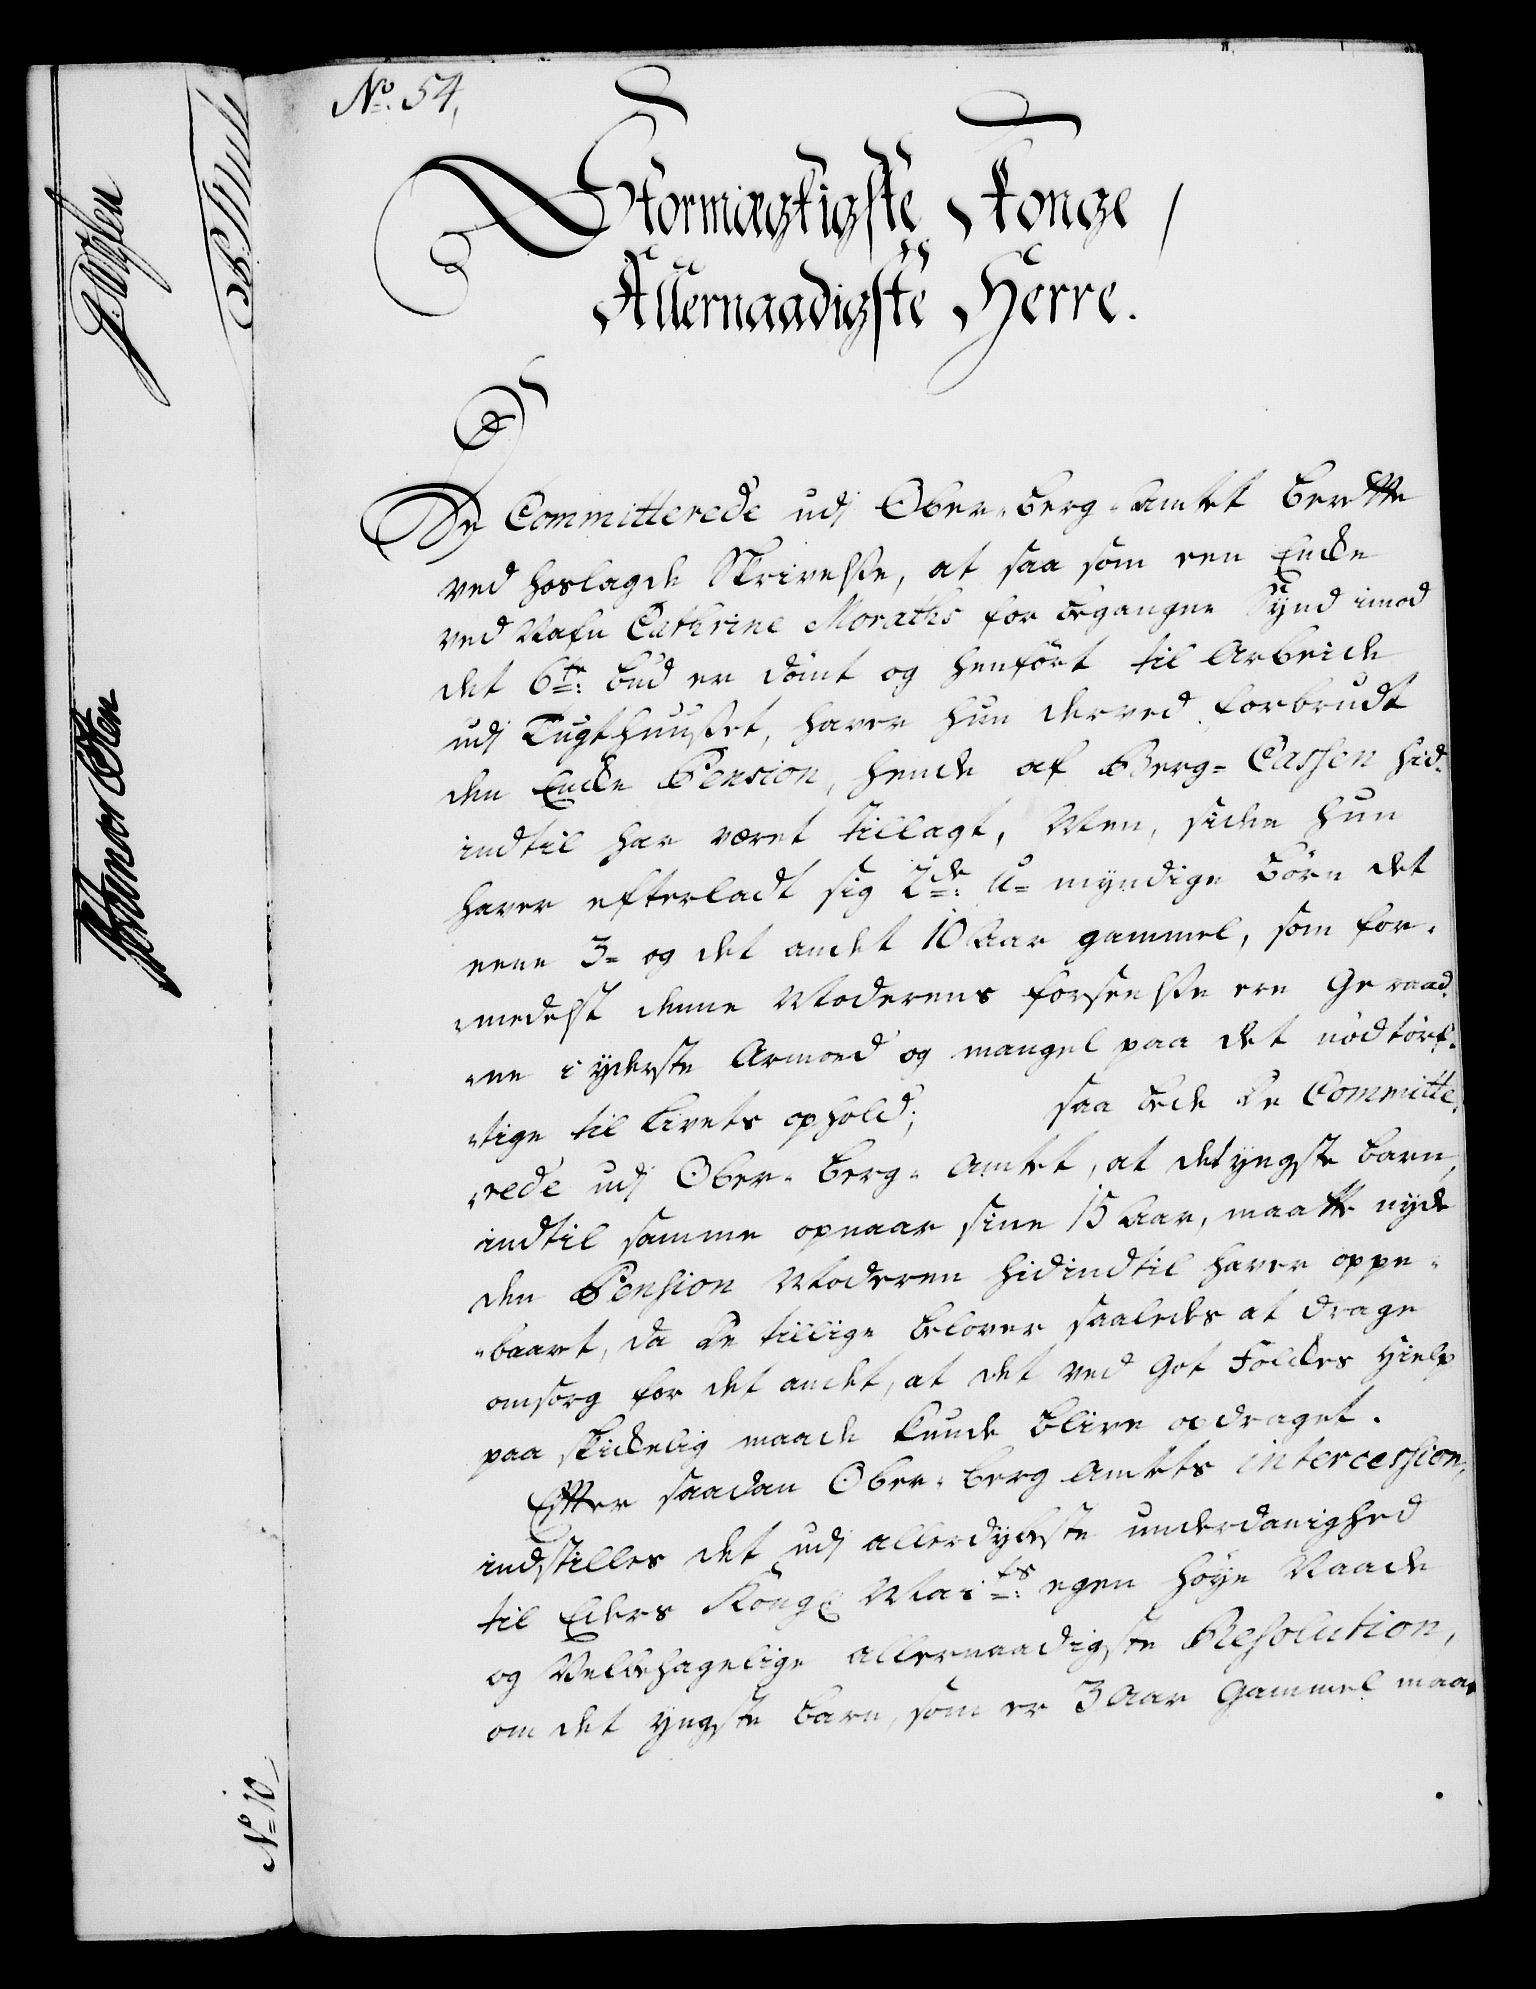 No. 54,
Stormægtigste Konge /
Allernaadigste Herre.
De Committerede udj Ober-berg-Amtet berette
ved hoslagde Skrivelse, at saa som een Encke
ved Nafn Cathrine Moraths for begangne Synd imod
det 6te bud er dömt og henfört til Arbeide
udj Tugthuuset, haver hun derved forbrudt
den Encke Pension, hende af Berg-Cassen hid-
indtil har været tillagt, Men, siden hun
haver efterladt sig 2de u-myndige börn det
eene 3- og det andet 10 Aar gammel, som for-
medelst denne Moderens forseelse ere Geraad-
ne i yderste Armoed og mangel paa det nödtörf-
tige til Livets ophold; saa bede de Committe-
rede udj Ober-berg-Amtet, at det yngste barn,
indtil samme opnaar sine 15 Aar, maatte nyde
den Pension Moderen hidindtil haver oppe-
baart, da de tillige belover saaledes at drage
omsorg for det andet, at det ved Got Folckes Hielp
paa skickelig maade kunde blive opdraget.
Efter saadan Ober-berg Amtets intercession,
indstilles det udj allerdybste underdanighed
til Eders Kongl Maits egen höye Naade
og Velbehagelige allernaadigste Resolution,
om det yngste barn, som er 3 Aar Gammel maa
No 10